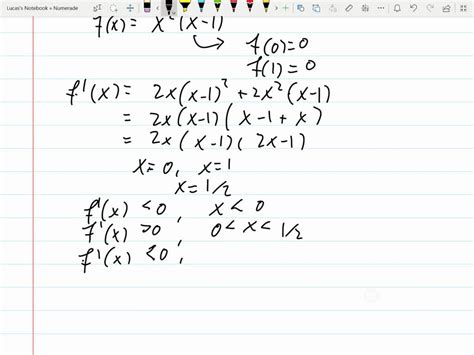 Lucas's Notebook • Numerade
f(x) = x²(x-1)
f(0)=0
f(1)=0
f'(x) = 2x(x-1)² + 2x²(x-1)
= 2x(x-1)(x-1+x)
= 2x(x-1)(2x-1)
x=0, x=1
x=1/2
f'(x) <0, x<0
f'(x) >0, 0<x<1/2
f'(x) <0,